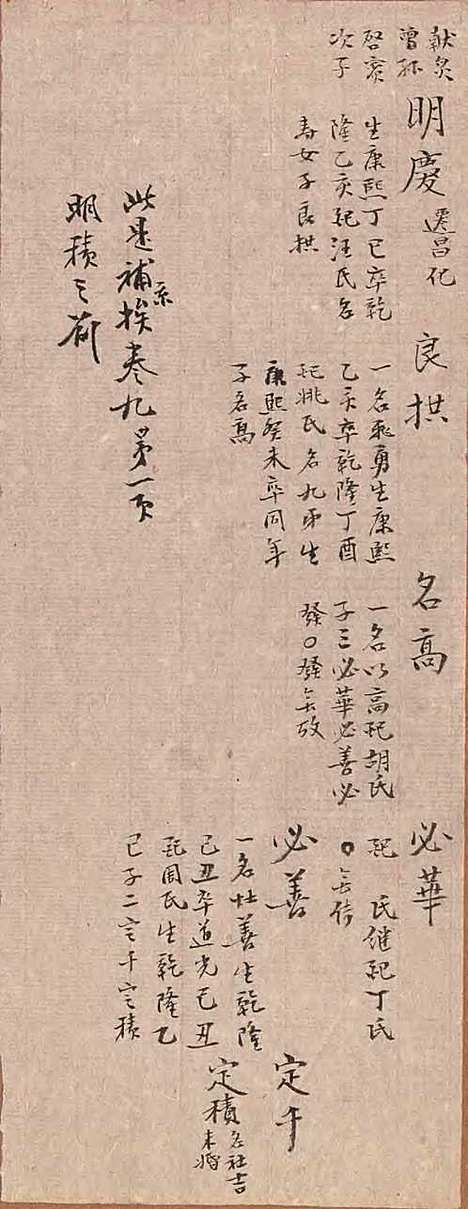 献炅
曾孫
啓賓
次子
明慶
遷昌化
生康熙丁巳卒乾
隆乙亥配汪氏名
壽女子良拱
良拱
一名乘勇生康熙
乙亥卒乾隆丁酉
配姚氏名九弟生
康熙癸未卒同年
子名高
名高
一名以高配胡氏
子三必華必善必
發〇發無攷
必華
配 氏继配丁氏
〇無傳
必善
一名社善生乾隆
己丑卒道光己丑
配周氏生乾隆乙
巳子二定千定積
定千
定積
名社吉
未婚
此是補系挨叁九第一页
明積之前